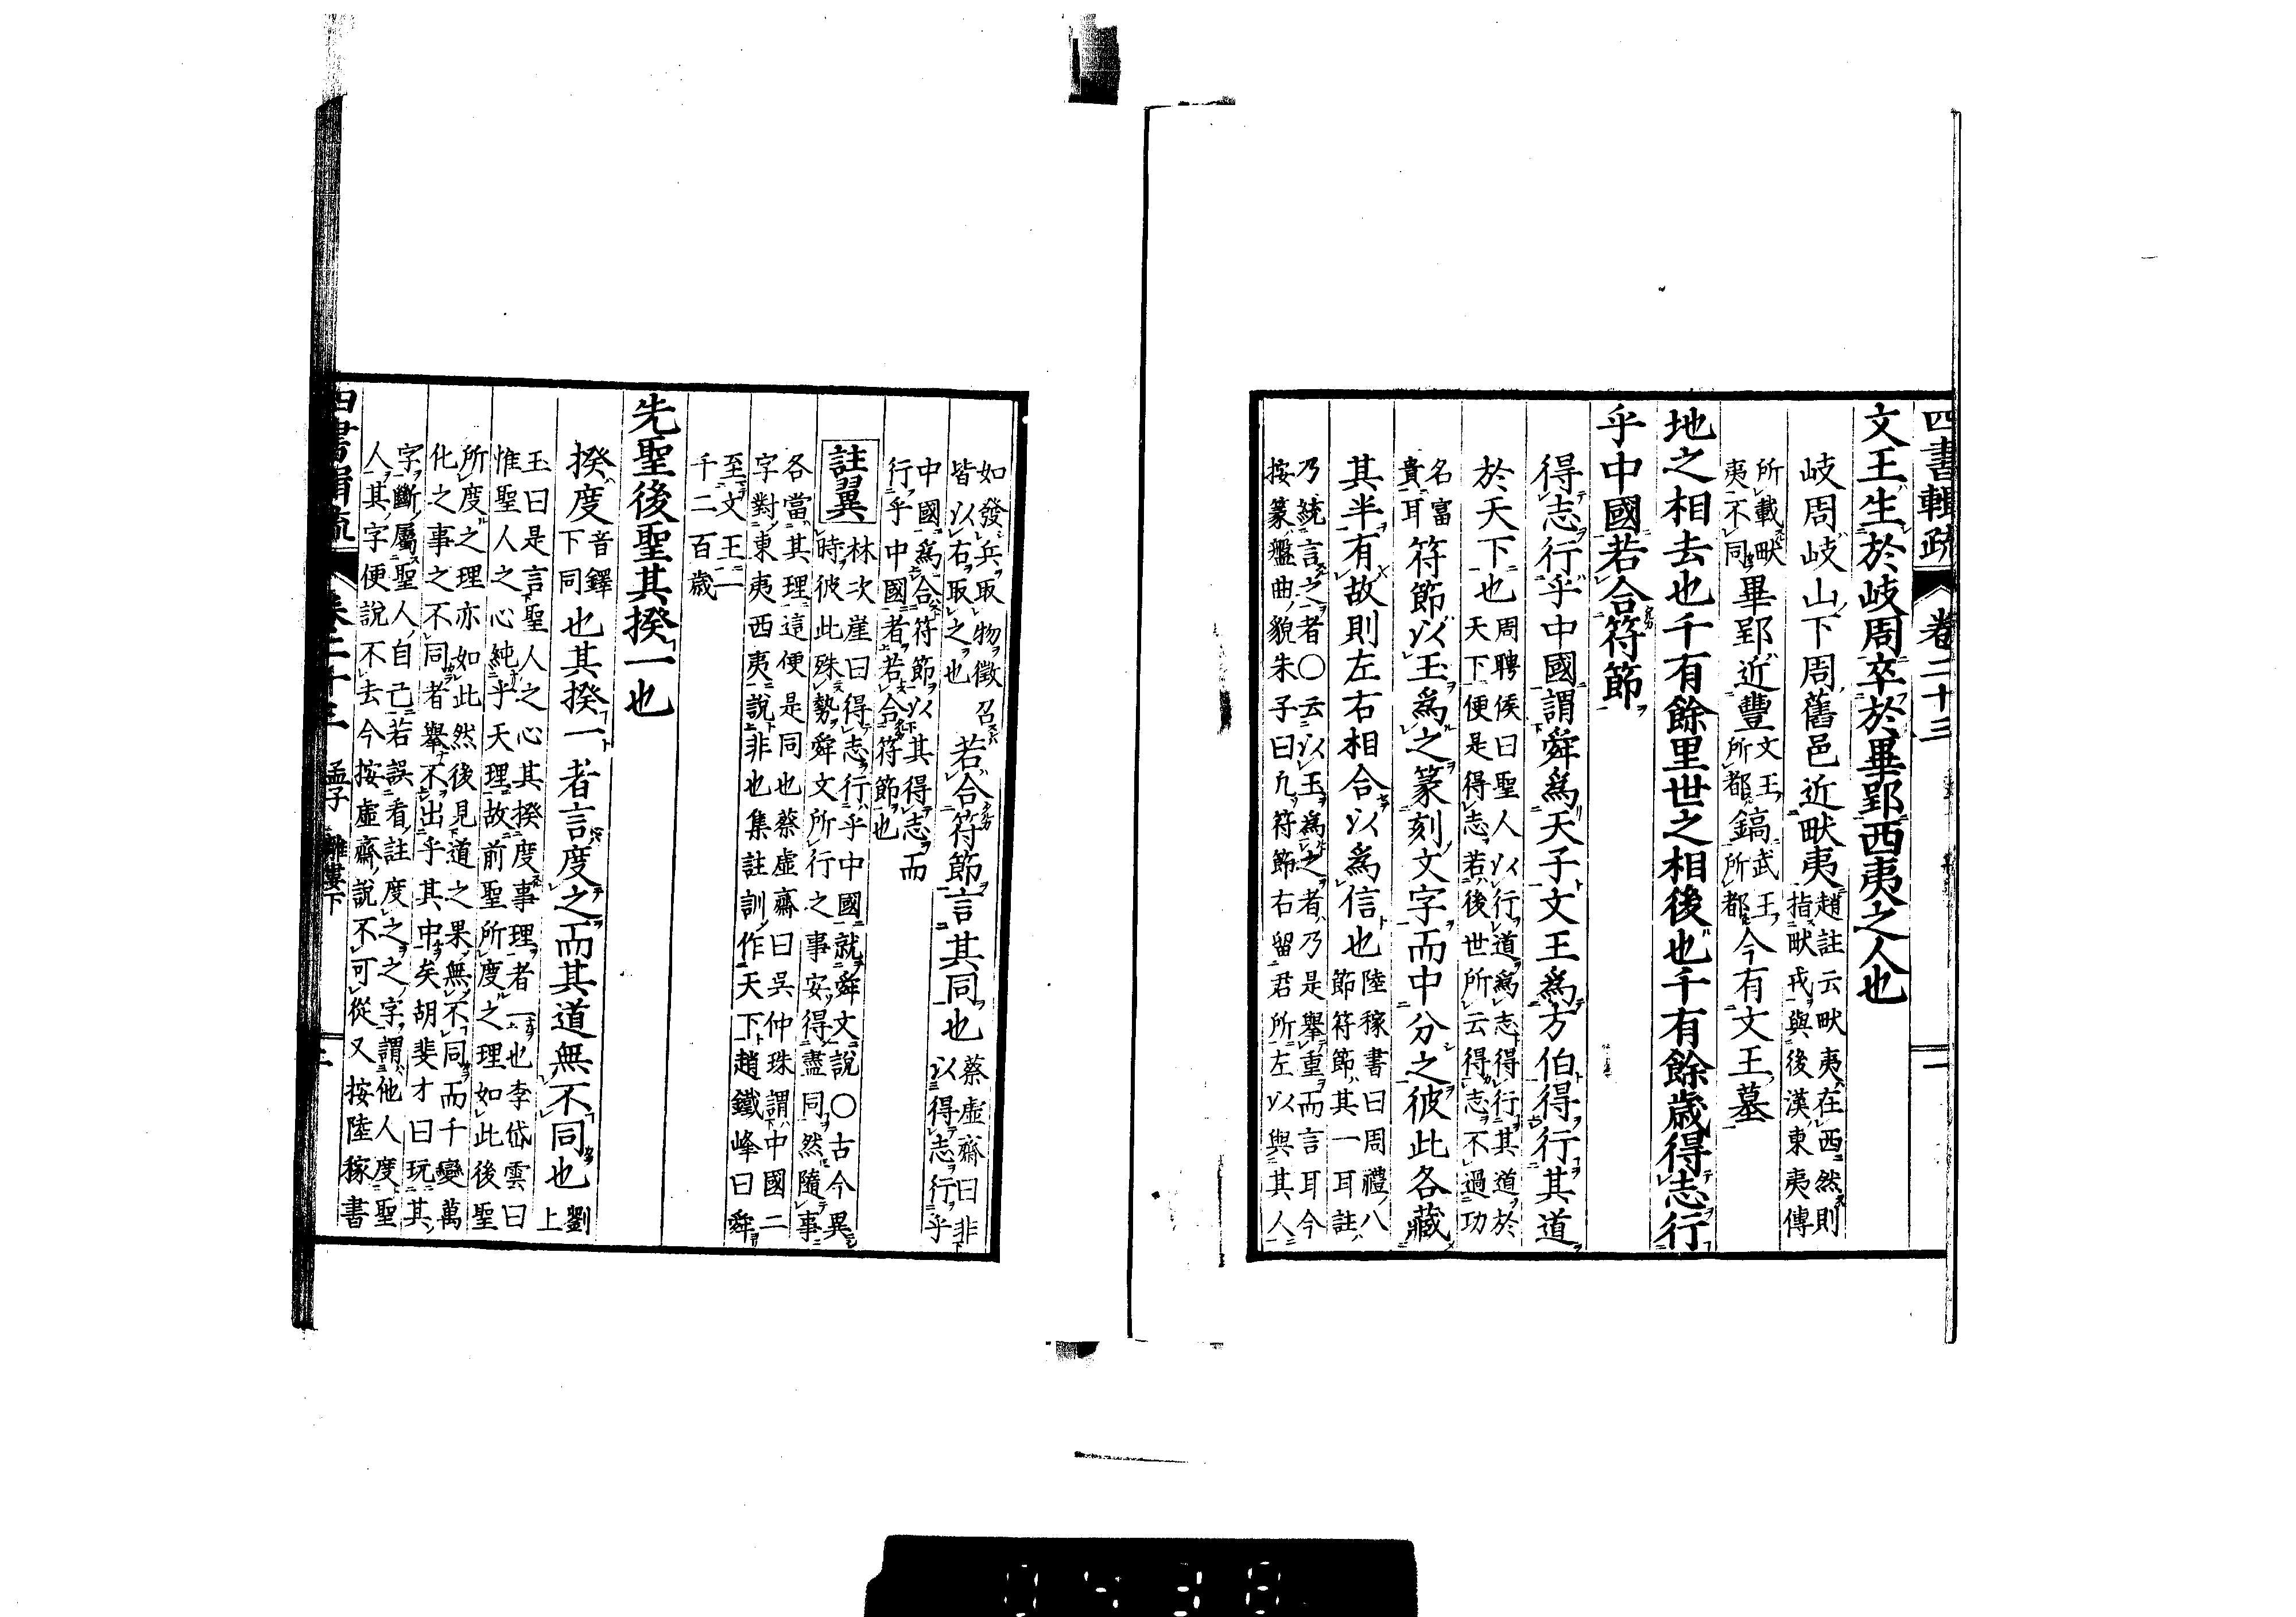 四書輯疏 卷二十三
文王生於岐周卒於畢郢西夷之人也
岐周岐山下周舊邑近畎夷趙註云畎夷在西然則
指畎戎與後漢東夷傳
所載畎
夷不同畢郢近豐文王
所都鎬武王
所都今有文王墓
地之相去也千有餘里世之相後也千有餘歲得志行
乎中國若合符節
得志行乎中國謂舜爲天子文王爲方伯得行其道
於天下也周聘侯曰聖人以行道爲志得行其道於
天下便是得志若後世所云得志不過功
名富
貴耳符節以玉爲之篆刻文字而中分之彼此各藏
其半有故則左右相合以爲信也陸稼書曰周禮八
節符節其一耳註
乃統言之者〇云以玉爲之者乃是舉重而言耳今
按篆盤曲貌朱子曰凡符節右留君所左以與其人
如發兵取物徵召
皆以右取之也若合符節言其同也蔡虛齋曰非
以得志行乎
中國爲合符節以其得志而
行乎中國者若合符節也
註翼林次崖曰得志行乎中國就舜文說〇古今異
時彼此殊勢舜文所行之事安得盡同然隨事
各當其理這便是同也蔡虛齋曰吳仲珠謂中國二
字對東夷西夷說非也集註訓作天下趙鐵峰曰舜
至文王一
千二百歲
先聖後聖其揆一也
揆度音鐸
下同也其揆一者言度之而其道無不同也劉
上
玉曰是言聖人之心其揆度事理者一也李岱雲曰
惟聖人之心純乎天理故前聖所度之理如此後聖
所度之理亦如此然後見道之果無不同而千變萬
化之事之不同者舉不出乎其中矣胡斐才曰玩其
字斷屬聖人自己若誤看註度之之字謂他人度聖
人其字便說不去今按虛齋說不可從又按陸稼書
四書輯疏 卷二十三 孟子 離婁下